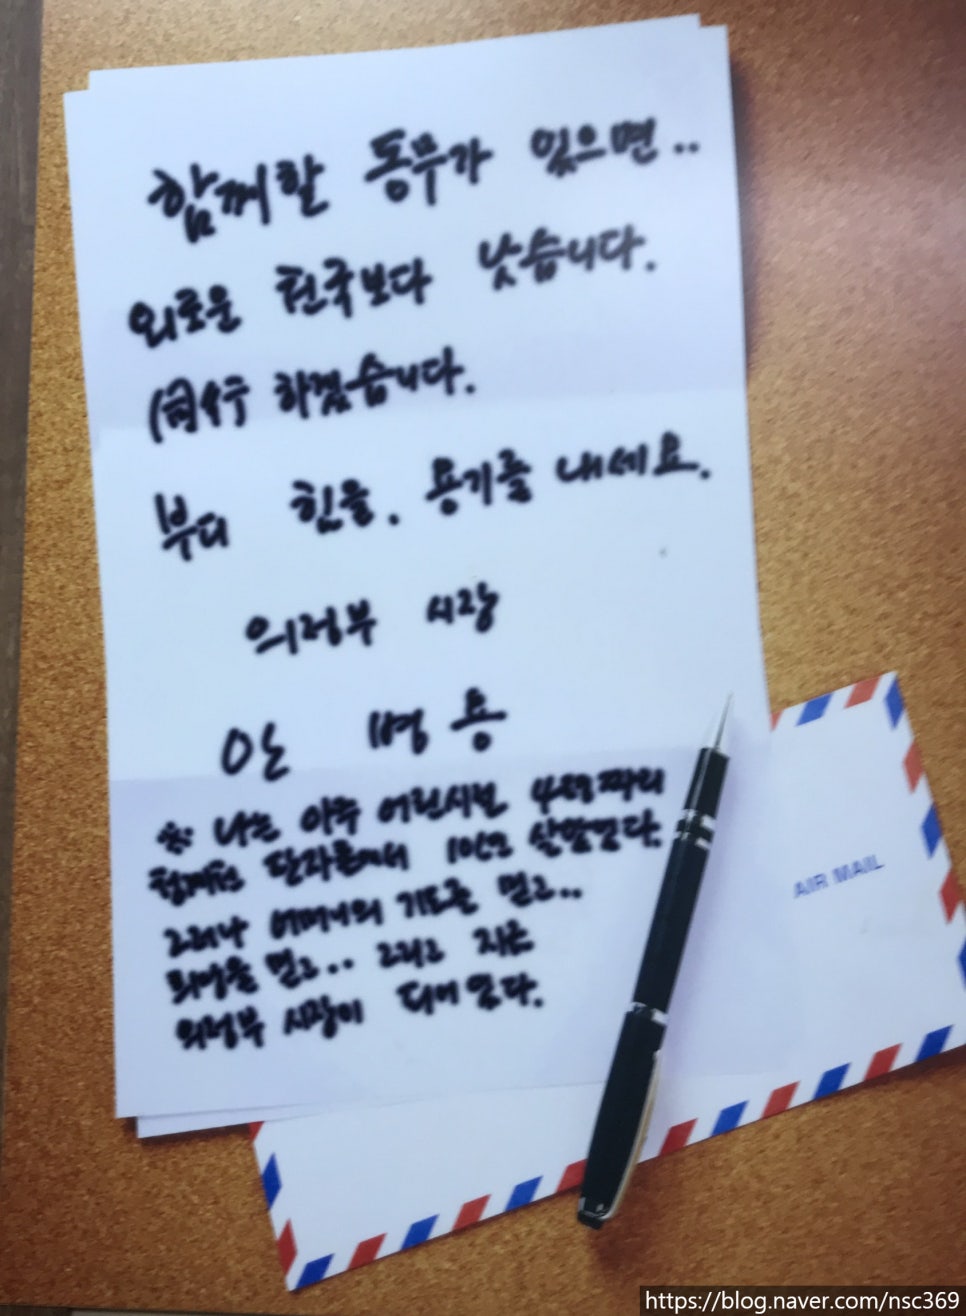 함께할 동무가 있으면..
외로운 천국보다 낫습니다.
同行 하겠습니다.
부디 힘을. 용기를 내세요.
의정부 시장
안 병용
※ 나는 아주 어린시절 4평짜리
판자촌에서 살았었다.
그러나 어머니의 기도를 믿고..
믿고.. 그리고 지금
의정부 시장이 되어 있다.
AIR MAIL
https://blog.naver.com/nsc369